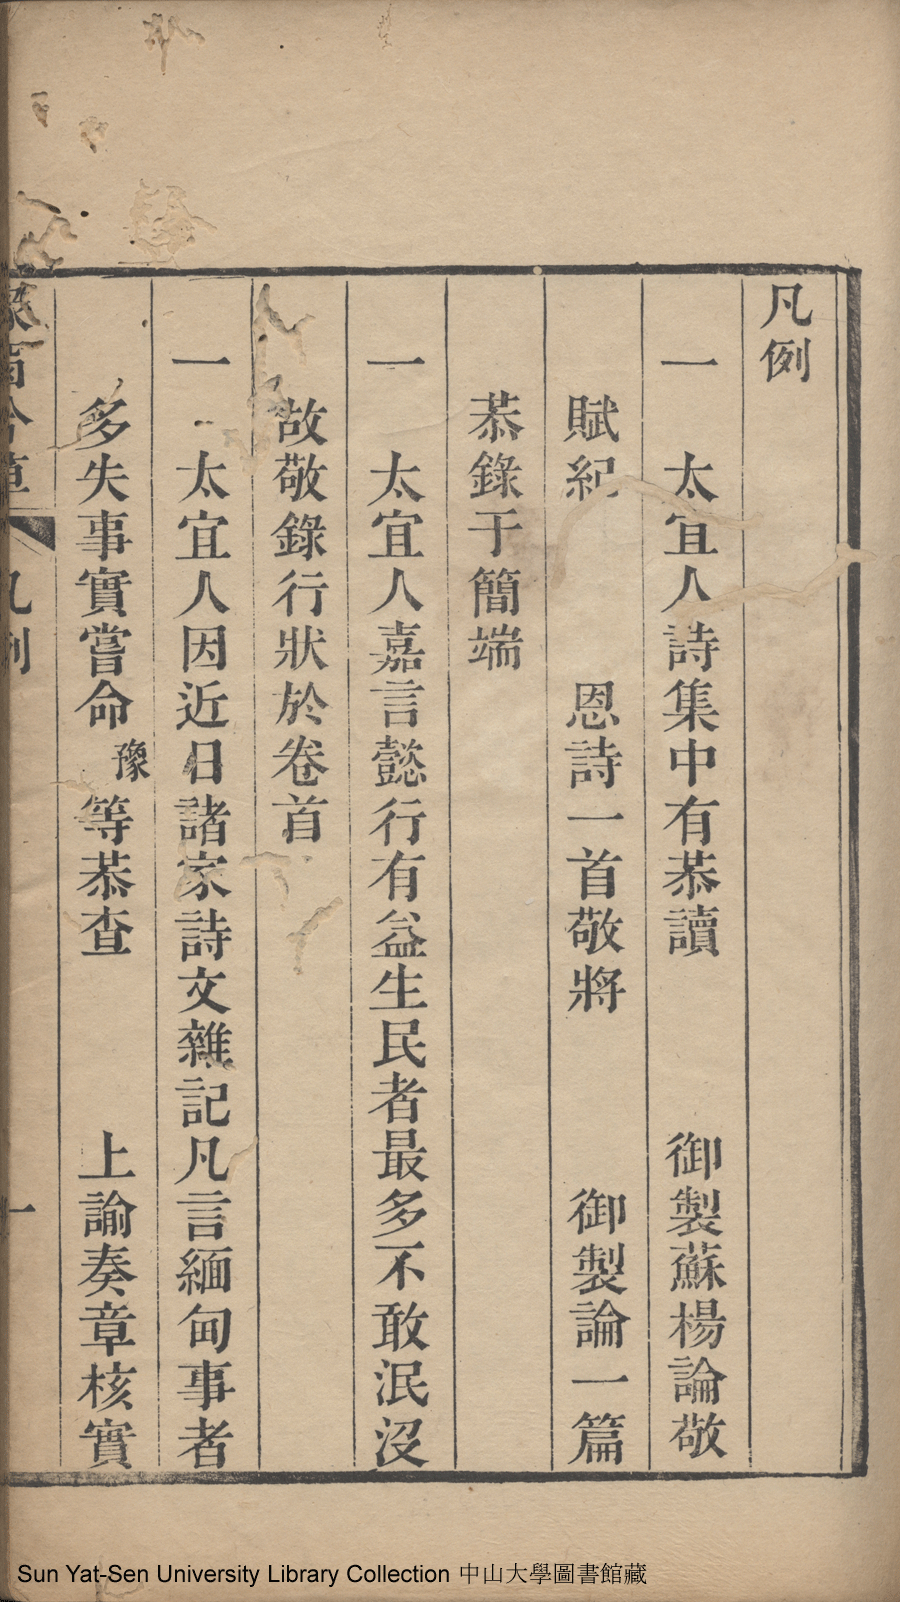 凡例
一　太宜人詩集中有恭讀　御製蘇楊論敬
賦紀　恩詩一首敬將　御製論一篇
恭錄于簡端
一　太宜人嘉言懿行有益生民者最多不敢泯沒
故敬錄行狀於卷首
一　太宜人因近日諸家詩文雜記凡言緬甸事者
多失事實嘗命豫等恭查　上諭奏章核實
吟草　凡例　一
Sun Yat-Sen University Library Collection 中山大學圖書館藏